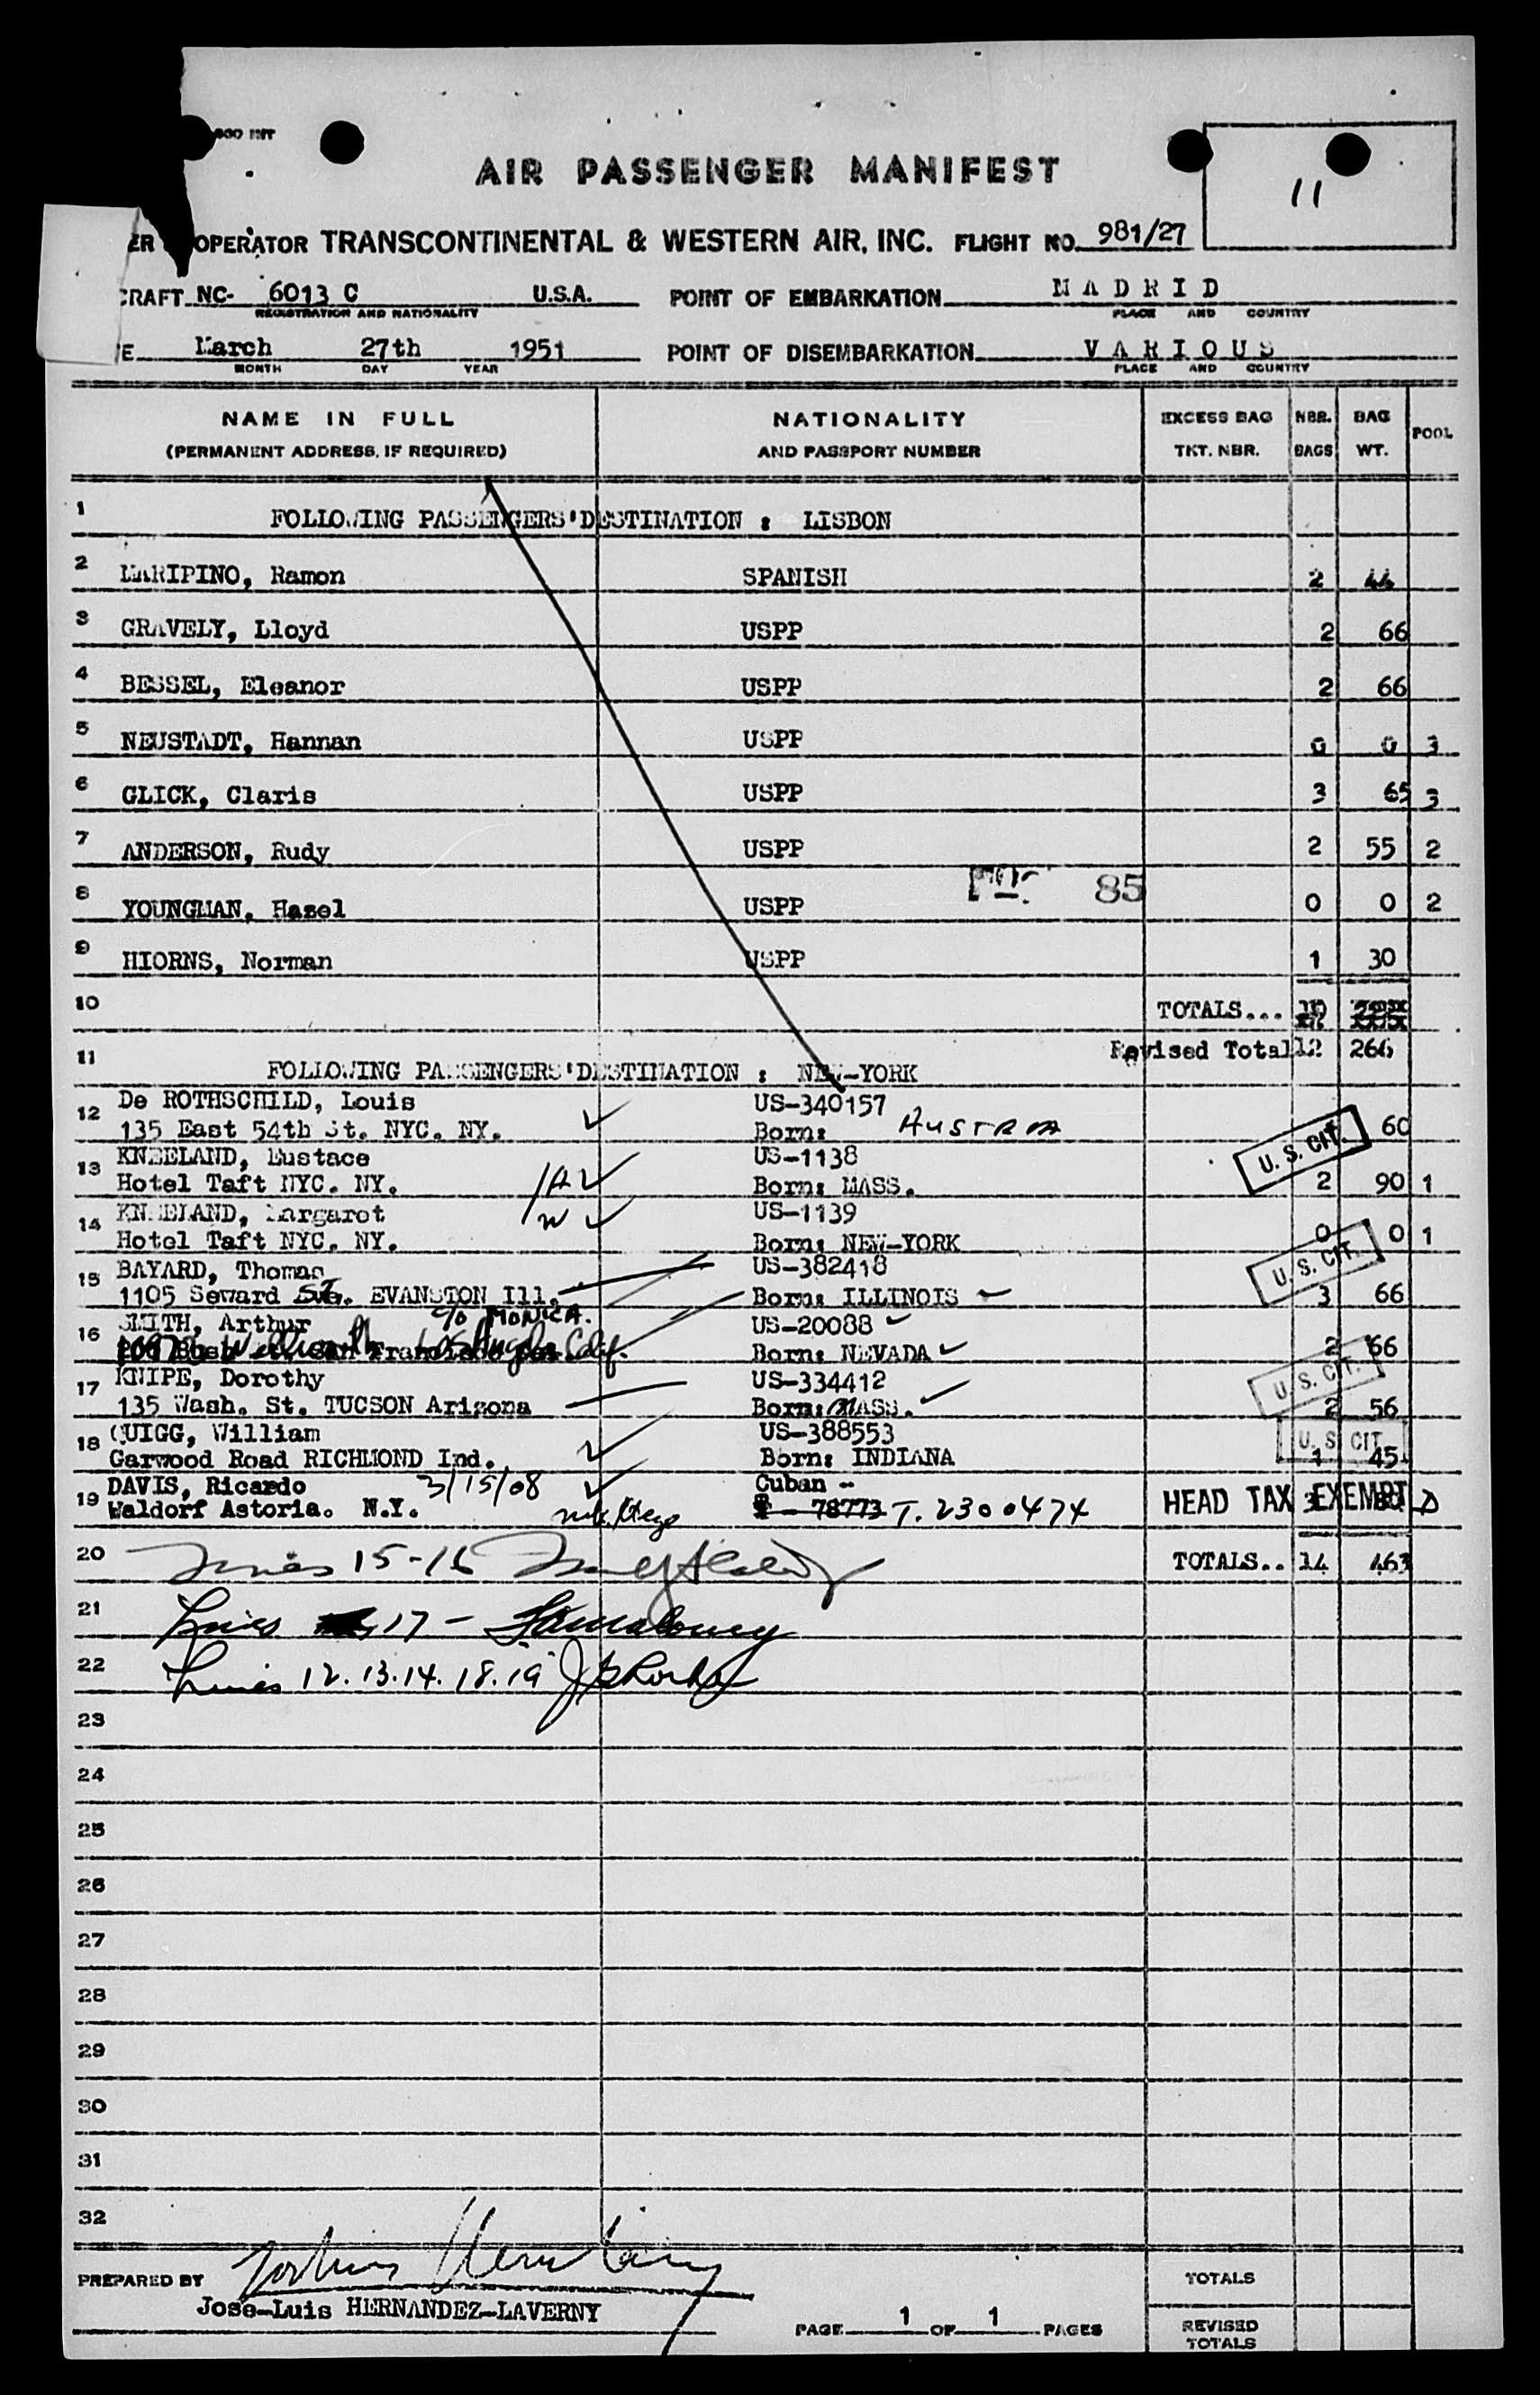 AIR PASSENGER MANIFEST
11
OPERATOR TRANSCONTINENTAL & WESTERN AIR, INC. FLIGHT NO. 981/27
CRAFT NC- 6013 C U.S.A. POINT OF EMBARKATION MADRID
REGISTRATION AND NATIONALITY PLACE AND COUNTRY
March 27th 1951 POINT OF DISEMBARKATION VARIOUS
MONTH DAY YEAR PLACE AND COUNTRY
NAME IN FULL NATIONALITY EXCESS BAG NBR. BAG POOL
(PERMANENT ADDRESS, IF REQUIRED) AND PASSPORT NUMBER TKT. NBR. BAGS WT.
1 FOLLOWING PASSENGERS'DESTINATION : LISBON
2 MARIPINO, Ramon SPANISH 2 44
3 GRAVELY, Lloyd USPP 2 66
4 BESSEL, Eleanor USPP 2 66
5 NEUSTADT, Hannan USPP 0 0 3
6 GLICK, Claris USPP 3 65 3
7 ANDERSON, Rudy USPP 2 55 2
85
8 YOUNGMAN, Hazel USPP 0 0 2
9 HIORNS, Norman USPP 1 30
10 TOTALS...
Revised Total 12 266
11 FOLLOWING PASSENGERS'DESTINATION : NEW-YORK
12 De ROTHSCHILD, Louis US-340157
135 East 54th St. NYC. NY. Born: AUSTRIA U. S. CIT. 60
13 KNEELAND, Eustace US-1138
Hotel Taft NYC. NY. Born: MASS. 2 90 1
14 KNEELAND, Margaret US-1139
Hotel Taft NYC. NY. Born: NEW-YORK 0 0 1
U. S. CIT.
15 BAYARD, Thomas US-382418
1105 Seward St. EVANSTON Ill. Born: ILLINOIS 3 66
16 SMITH, Arthur c/o MONICA. US-20088
Los Angeles Calif. Born: NEVADA 2 66
U. S. CIT.
17 KNIPE, Dorothy US-334412
135 Wash. St. TUCSON Arizona Born: MASS. 2 56
18 QUIGG, William US-388553 U. S. CIT.
Garwood Road RICHMOND Ind. Born: INDIANA 1 45
19 DAVIS, Ricardo 3/15/08 Cuban -
Waldorf Astoria. N.Y. 78773 T. 2300474 HEAD TAX EXEMPT
20 Lines 15-16 TOTALS.. 14 463
21 Lines 17 -
22 Lines 12.13.14.18.19
23
24
25
26
27
28
29
30
31
32
PREPARED BY TOTALS
Jose-Luis HERNANDEZ-LAVERNY
PAGE 1 OF 1 PAGES REVISED
TOTALS